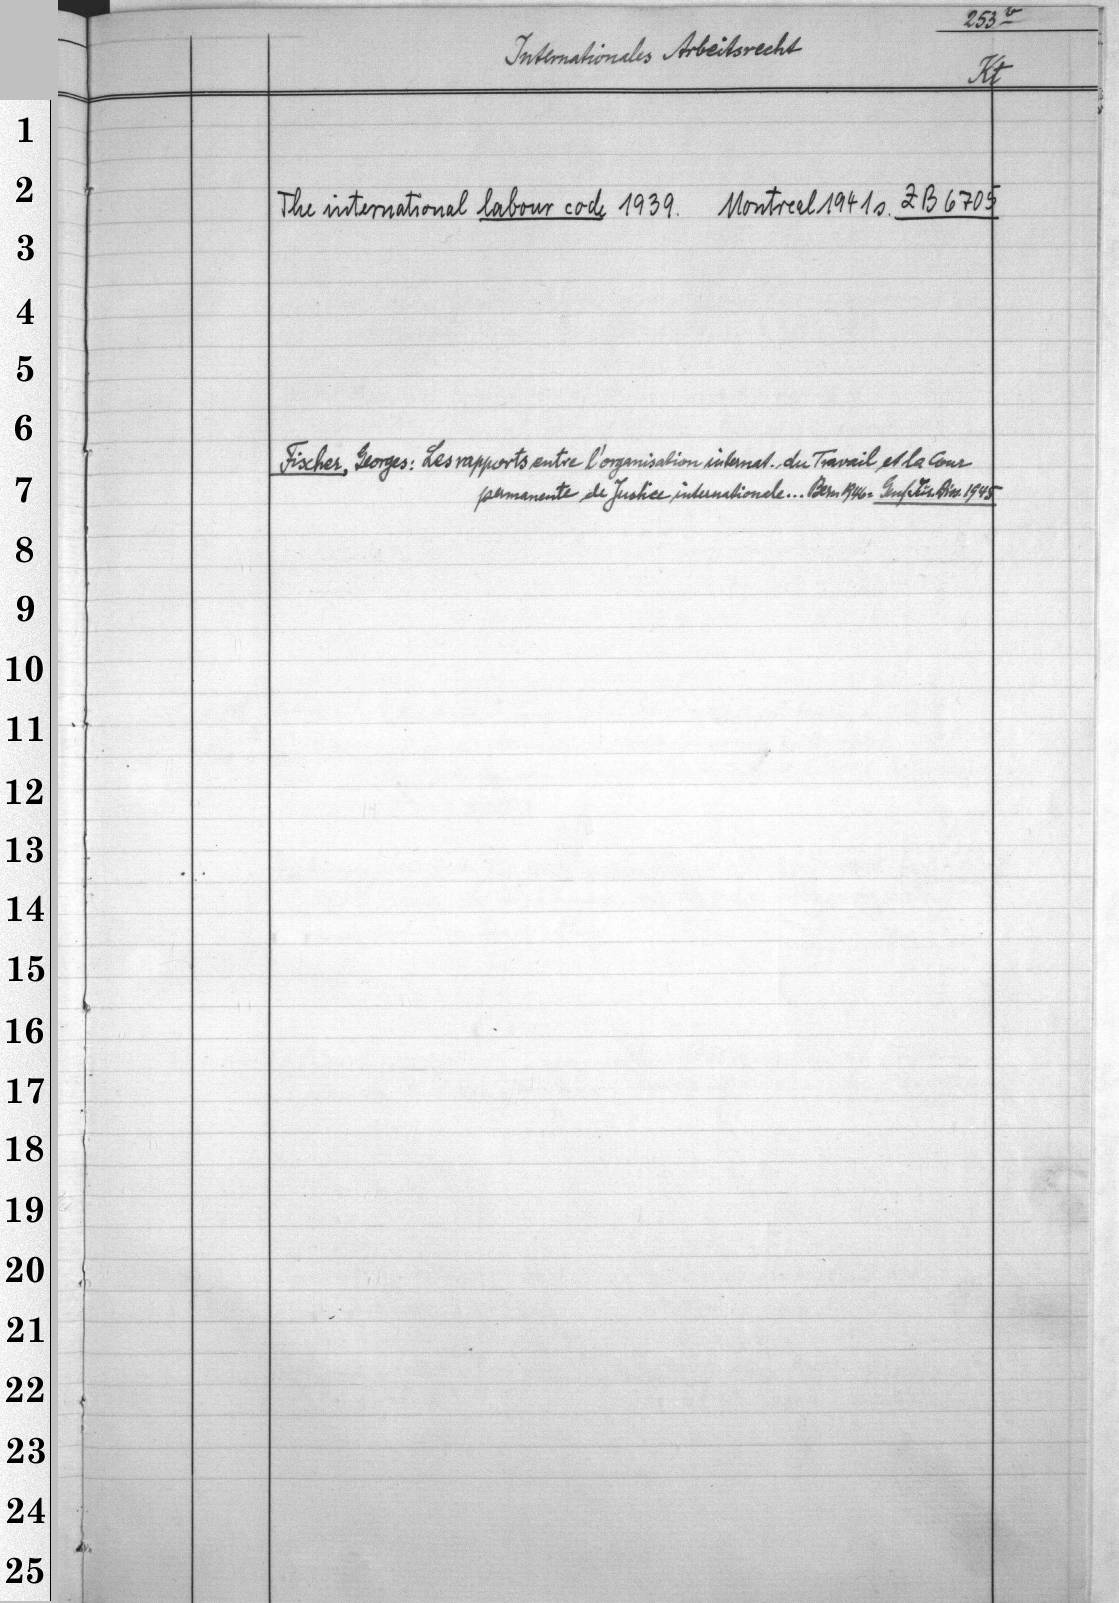 253 v
Internationales Arbeitsrecht
Kt
1
2
The international labour code 1939. Montreal 1941 s. ZB 6705
3
4
5
6
Fischer, Georges: Les rapports entre l'organisation internat. du Travail et la Cour
7
permanente de Justice internationale... Bern 1946 = Genf. Jur. Diss. 1945
8
9
10
11
12
13
14
15
16
17
18
19
20
21
22
23
24
25